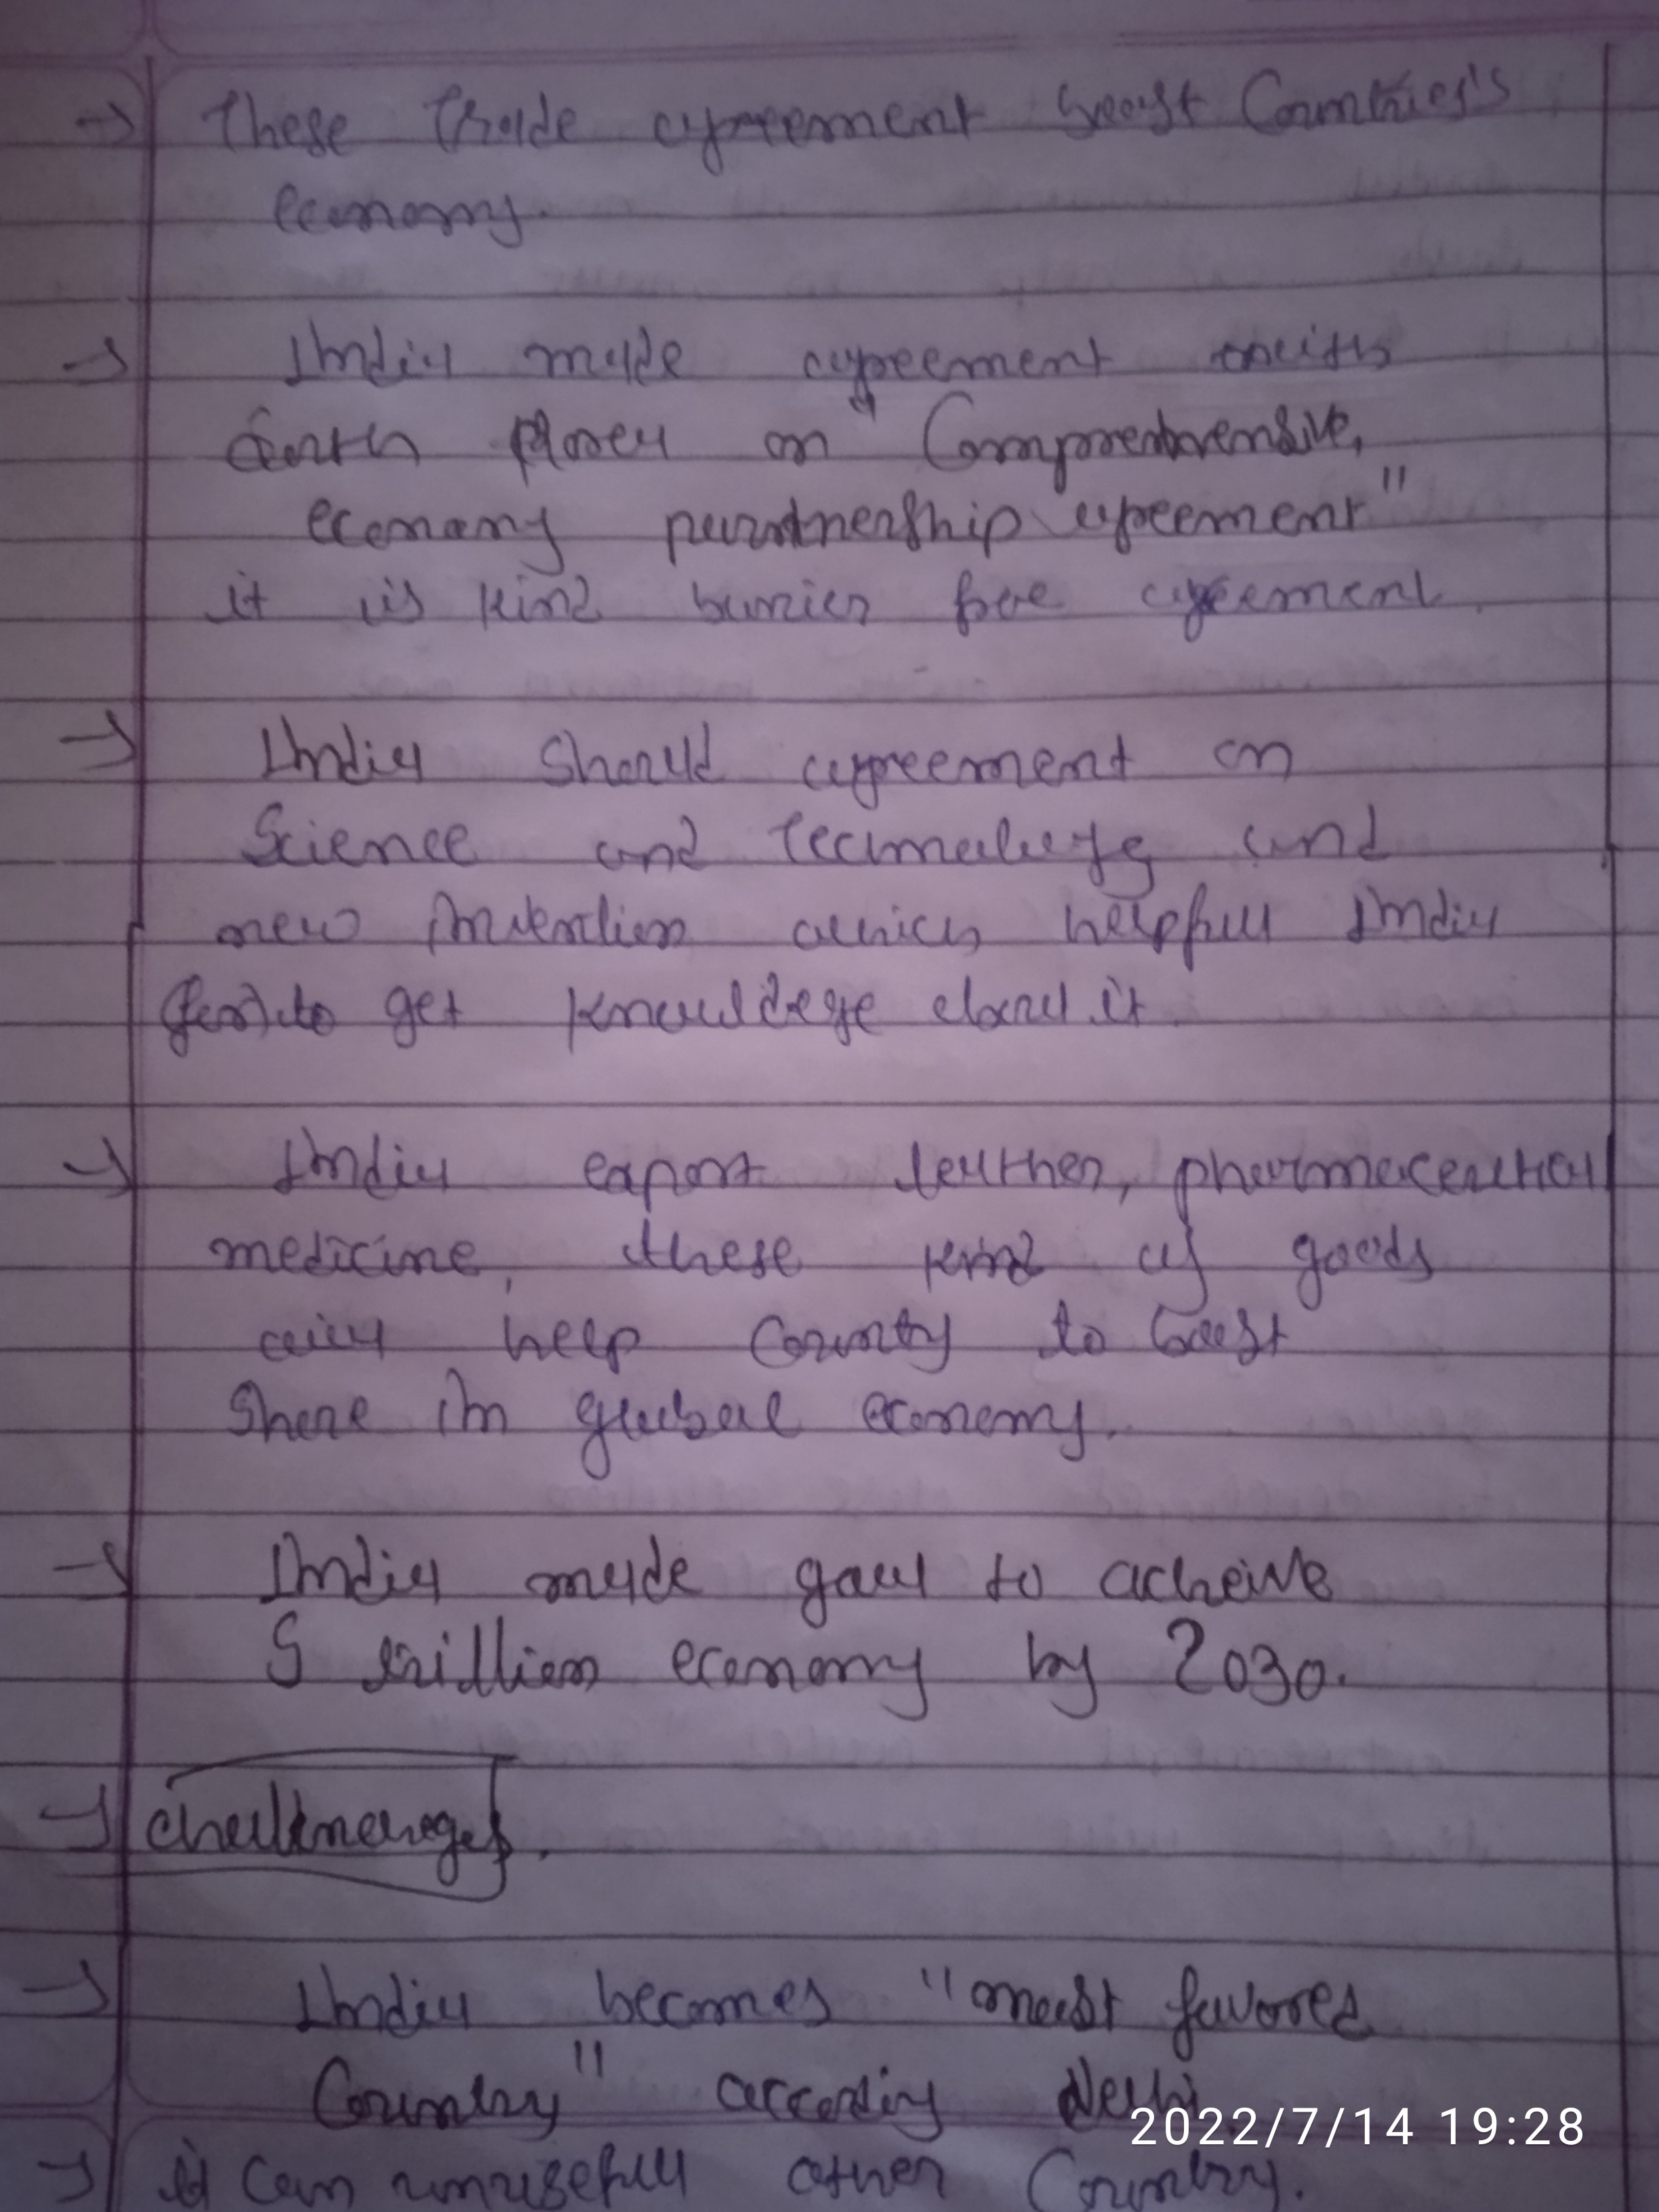 → These Trade agreement boost Countries's
economy.
→ India made agreement with
South Korea on "Comprehensive,
economy partnership agreement"
it is kind barrier free agreement.
→ India should agreement on
Science and Technology and
new invention which helpfull India
to get knowledge about it.
→ India export leather, pharmaceutical
medicine, these kind of goods
will help County to boost
Share in global economy.
→ India made goal to acheive
5 trillion economy by 2030.
→ .
→ India becomes "most favored
Country" according Delhi
→ it can unusefull other Country.
2022/7/14 19:28